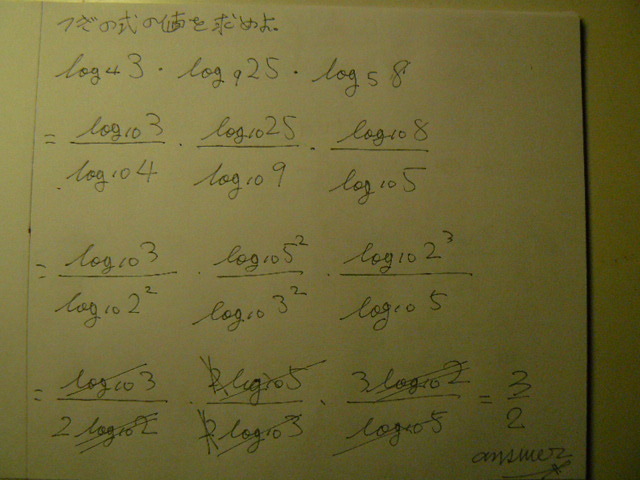 次の式の値を求めよ.
log₄3・log₉25・log₅8
= log₁₀3/log₁₀4 ・ log₁₀25/log₁₀9 ・ log₁₀8/log₁₀5
= log₁₀3/log₁₀2² ・ log₁₀5²/log₁₀3² ・ log₁₀2³/log₁₀5
= log₁₀3/2log₁₀2 ・ 2log₁₀5/2log₁₀3 ・ 3log₁₀2/log₁₀5 = 3/2
answer